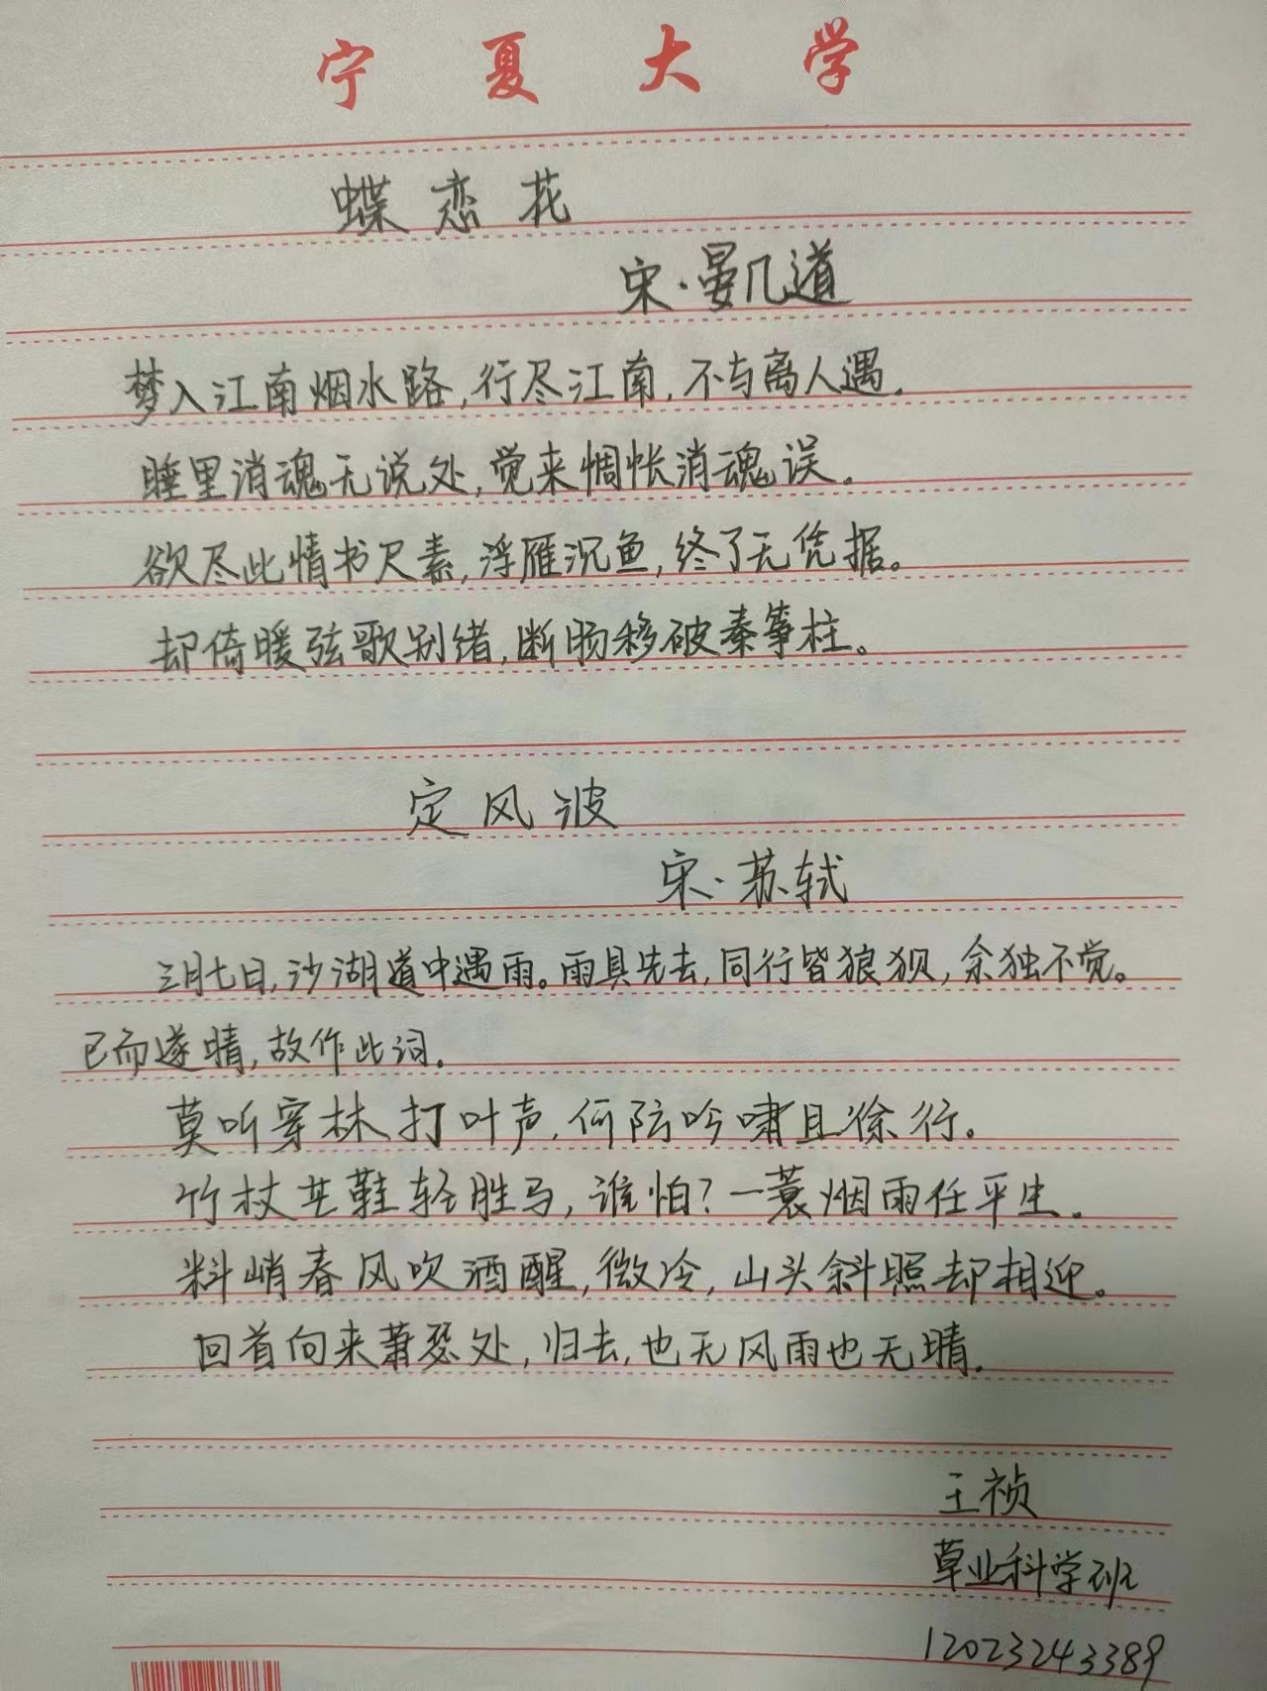 宁夏大学
蝶恋花
宋·晏几道
梦入江南烟水路,行尽江南,不与离人遇.
睡里消魂无说处,觉来惆怅消魂误。
欲尽此情书尺素,浮雁沉鱼,终了无凭据。
却倚暖弦歌别绪,断肠移破秦筝柱。
定风波
宋·苏轼
三月七日,沙湖道中遇雨。雨具先去,同行皆狼狈,余独不觉。
已而遂晴,故作此词.
莫听穿林打叶声,何防吟啸且徐行。
竹杖芒鞋轻胜马,谁怕?一蓑烟雨任平生.
料峭春风吹酒醒,微冷,山头斜照却相迎。
回首向来萧瑟处,归去,也无风雨也无晴.
王祯
草业科学班
12023243389